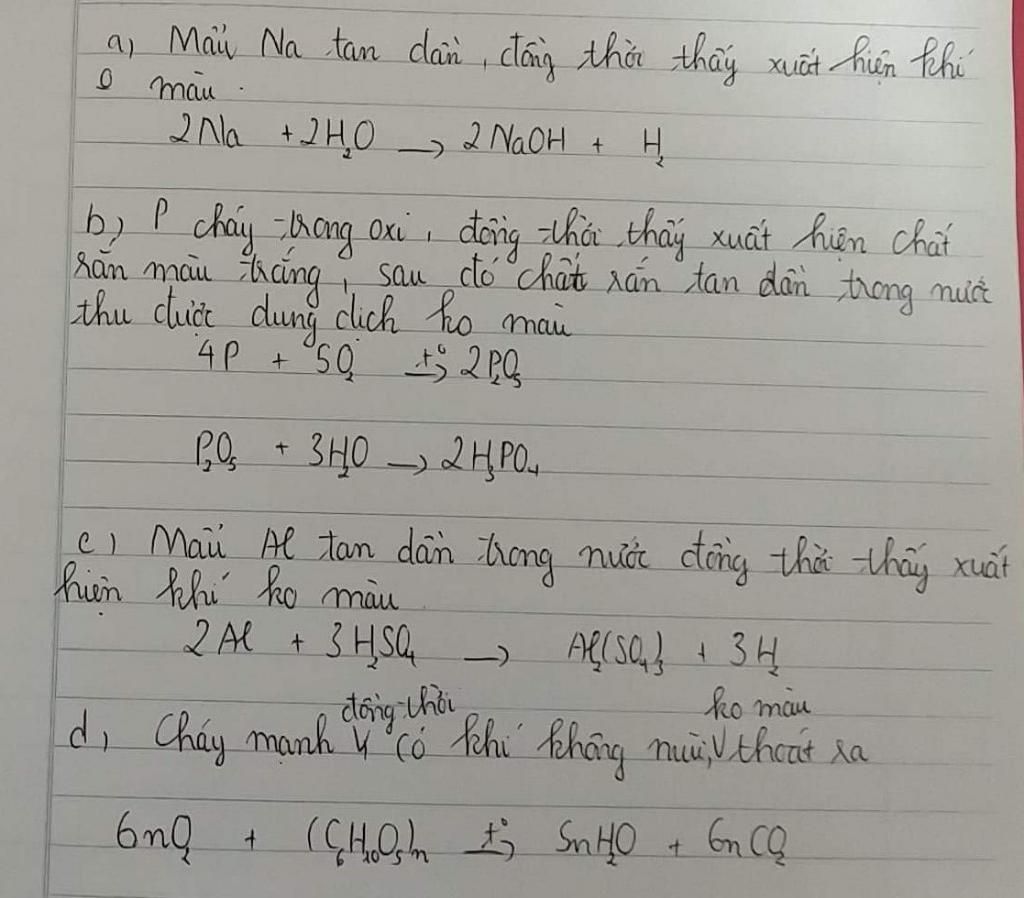 a, Mẩu Na tan dần, đồng thời thấy xuất hiện khí
0 màu.
2Na + 2H₂O → 2NaOH + H₂
b, P cháy trong oxi, đồng thời thấy xuất hiện chất
rắn màu trắng, sau đó chất rắn tan dần trong nước
thu được dung dịch ko màu
4P + 5O₂ →(t°) 2P₂O₅
P₂O₅ + 3H₂O → 2H₃PO₄
c, Mẩu Al tan dần trong nước đồng thời thấy xuất
hiện khí ko màu
2Al + 3H₂SO₄ → Al₂(SO₄)₃ + 3H₂
đồng thời ko màu
d, Cháy mạnh có khí không mùi, thoát ra
6nO₂ + (C₆H₁₀O₅)n →(t°) 5nH₂O + 6nCO₂